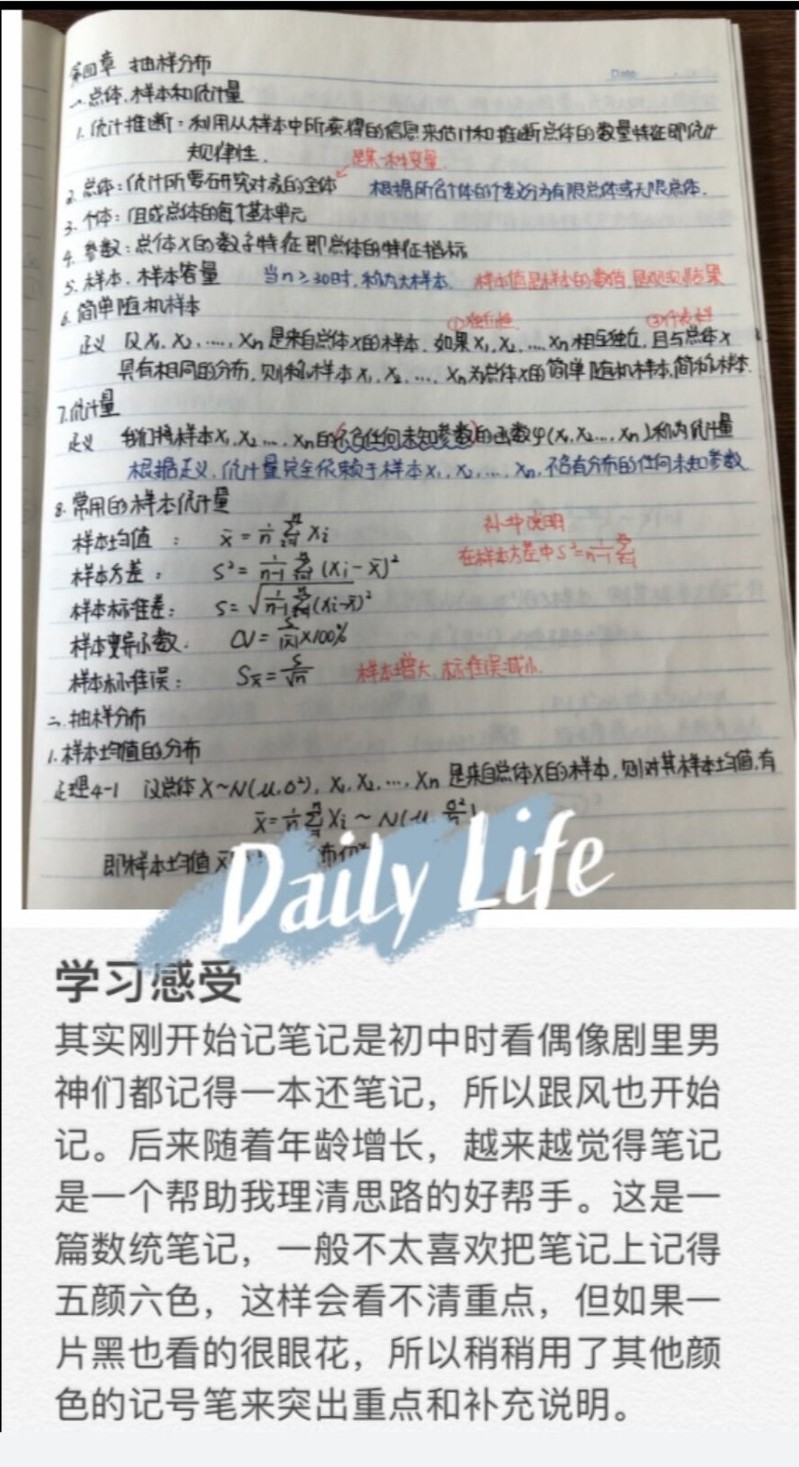 第四章 抽样分布
Date
一、总体、样本和统计量
1. 统计推断：利用从样本中所获得的信息来估计和推断总体的数量特征即统计
规律性．
是某一种变量
2. 总体：统计所要研究对象的全体
根据所含个体的个数分为有限总体或无限总体．
3. 个体：组成总体的每个基本单元
4. 参数：总体X的数字特征即总体的特征指标
5. 样本．样本容量 当n≥30时，称为大样本． 样本值是样本的数值，是观察结果
6. 简单随机样本
①独立性 ②代表性
定义 设X₁, X₂, …, Xn是来自总体X的样本，如果X₁, X₂, … Xn相互独立，且与总体X
具有相同的分布，则称样本X₁, X₂, …, Xn为总体X的简单随机样本，简称样本．
7. 统计量
定义 我们将样本X₁, X₂ …, Xn的(不含任何未知参数)的函数φ(X₁, X₂…, Xn)称为统计量
根据定义，统计量完全依赖于样本X₁, X₂, …, Xn，不含有分布的任何未知参数
8. 常用的样本统计量
样本均值： x̄ = 1/n Σ Xi
补充说明
样本方差： S² = 1/(n-1) Σ (Xi - x̄)²
在样本方差中S² = 1/(n-1) Σ
样本标准差： S = √(1/(n-1) Σ(Xi-x̄)²
样本变异系数． CV = S/|x̄| ×100%
样本标准误： Sx̄ = S/√n 样本增大，标准误减小
二、抽样分布
1. 样本均值的分布
定理4-1 设总体X~N(μ,σ²)，X₁, X₂, …, Xn是来自总体X的样本，则对其样本均值，有
x̄ = 1/n Σ Xi ~ N(μ, σ²/n)
即样本均值x̄
Daily Life
学习感受
其实刚开始记笔记是初中时看偶像剧里男
神们都记得一本还笔记，所以跟风也开始
记。后来随着年龄增长，越来越觉得笔记
是一个帮助我理清思路的好帮手。这是一
篇数统笔记，一般不太喜欢把笔记上记得
五颜六色，这样会看不清重点，但如果一
片黑也看的很眼花，所以稍稍用了其他颜
色的记号笔来突出重点和补充说明。